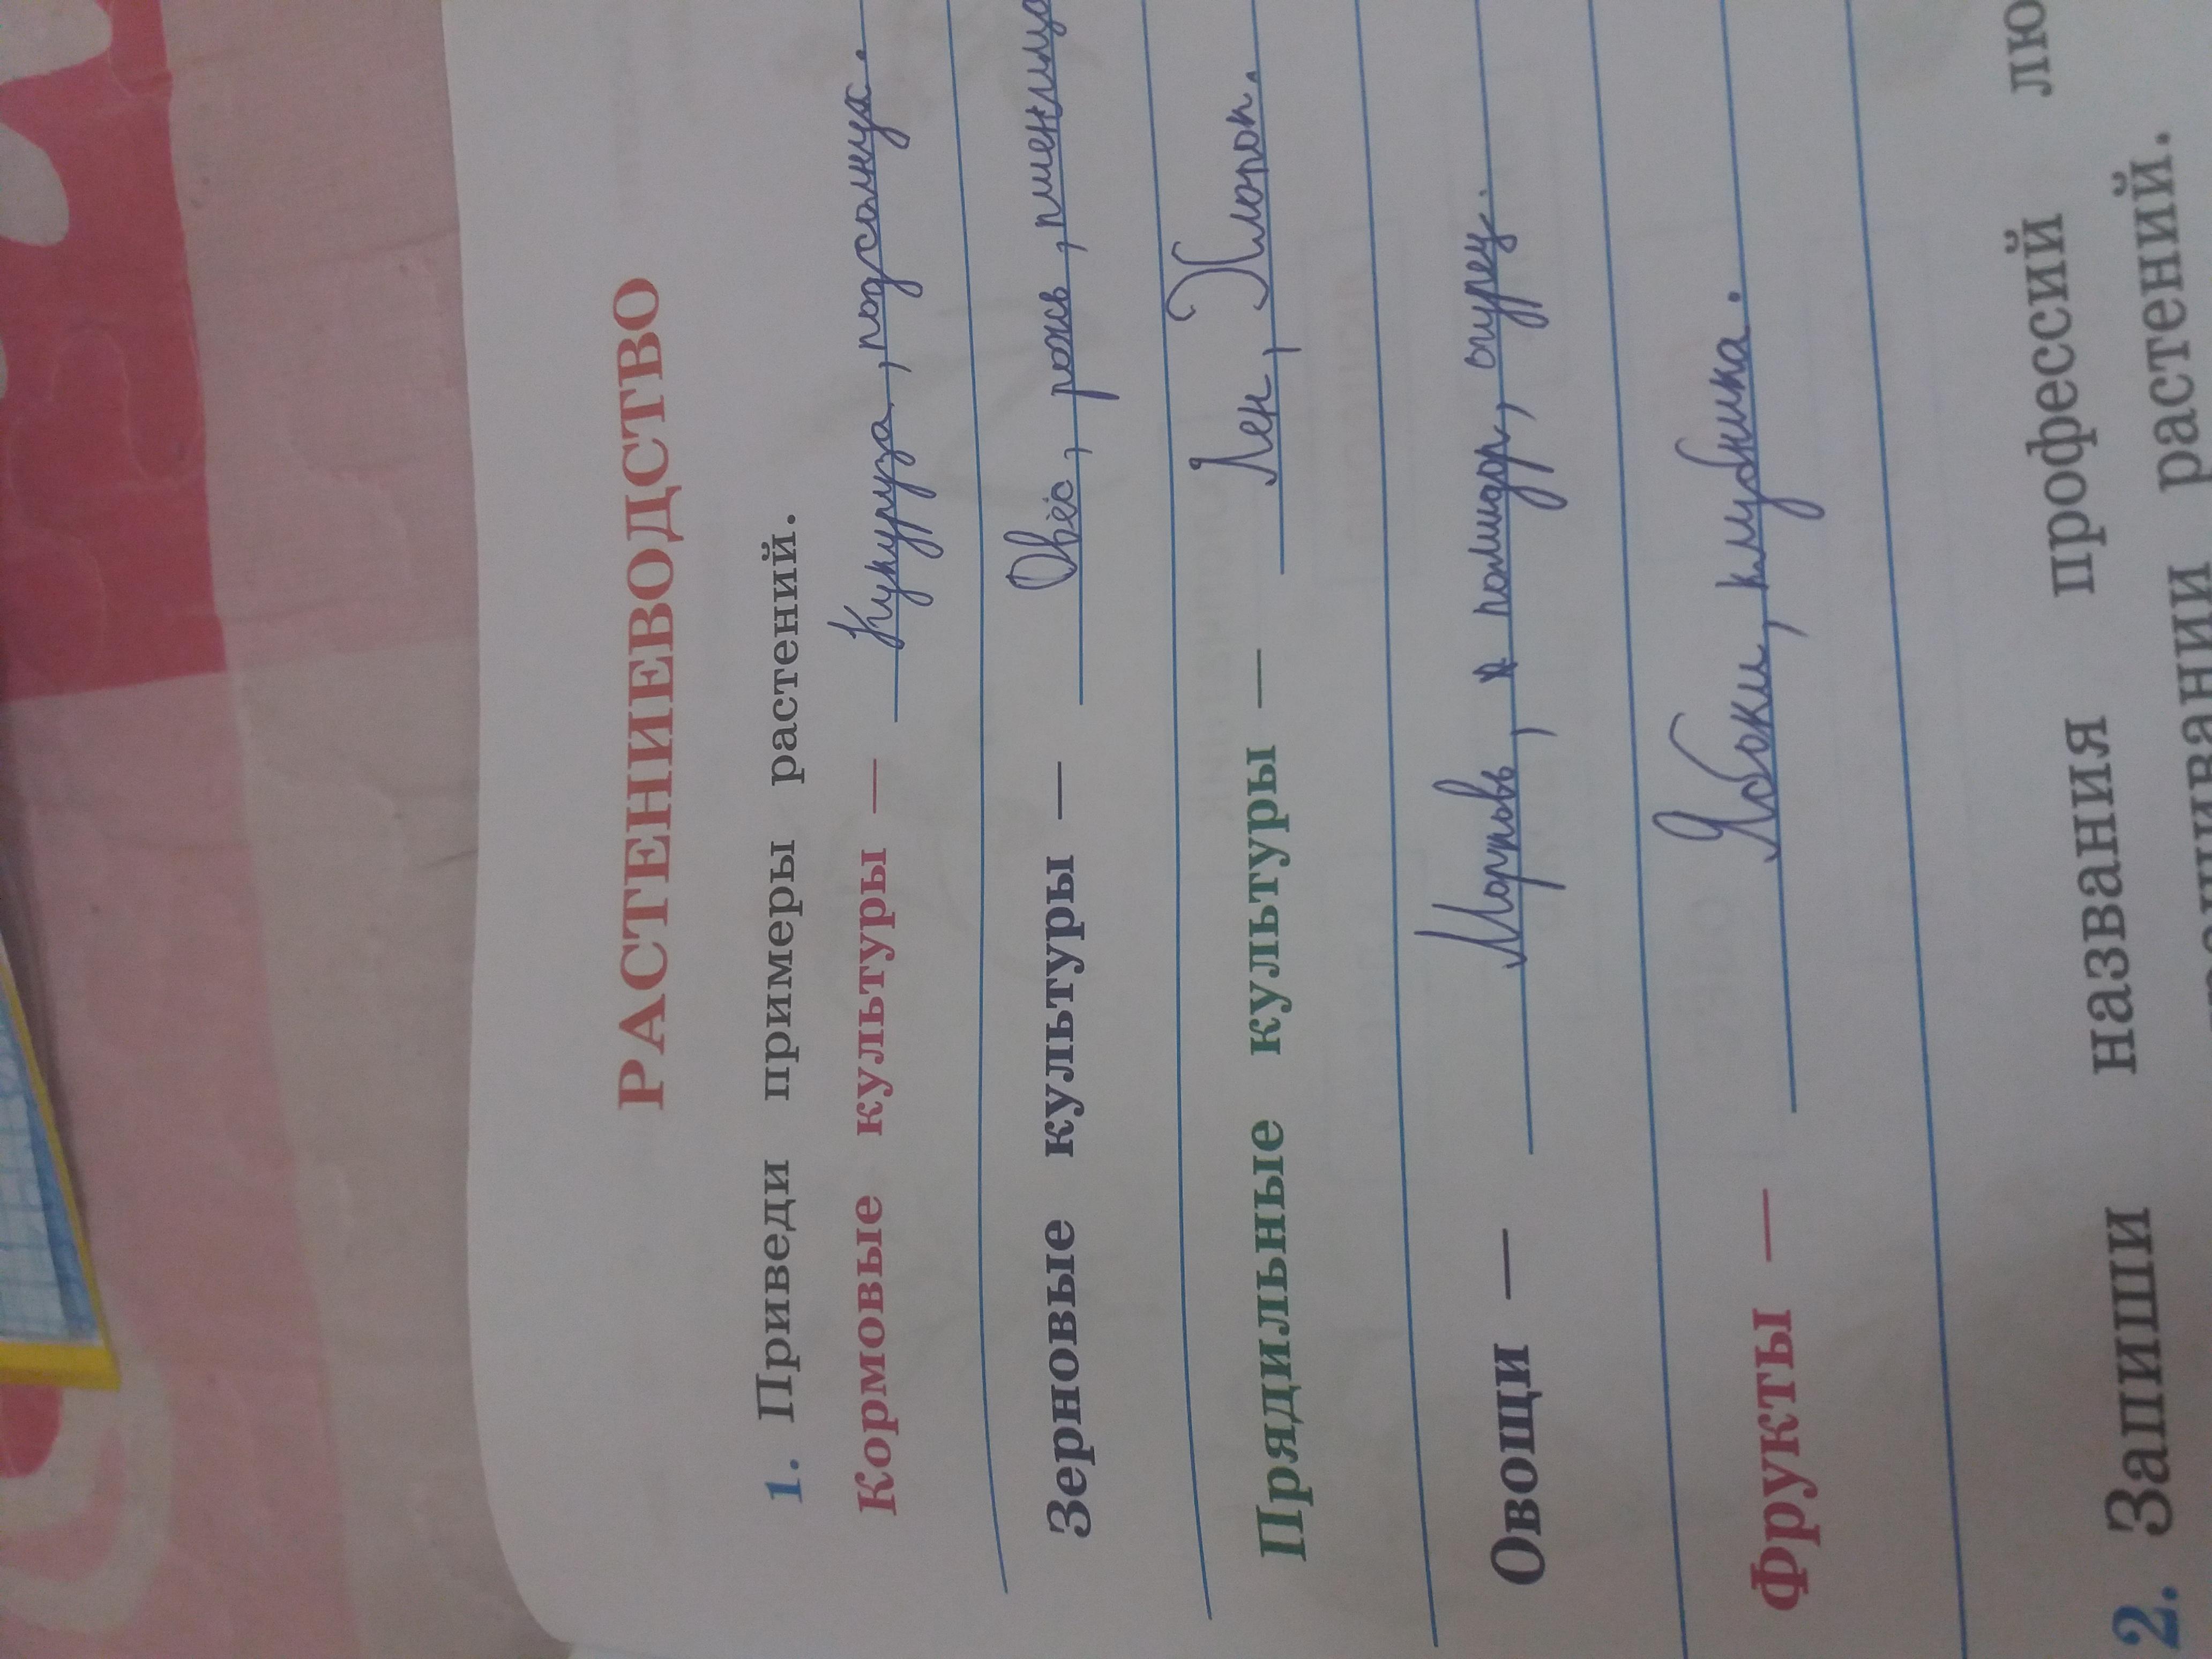 РАСТЕНИЕВОДСТВО
1. Приведи примеры растений.
Кормовые культуры — Кукуруза, подсолнух.
Зерновые культуры — Овёс, рожь, пшениц
Прядильные культуры — Лен, Хлопок.
Овощи — Морковь, помидор, огурец.
Фрукты — Яблоки, клубника.
2. Запиши названия профессий лю
растений.